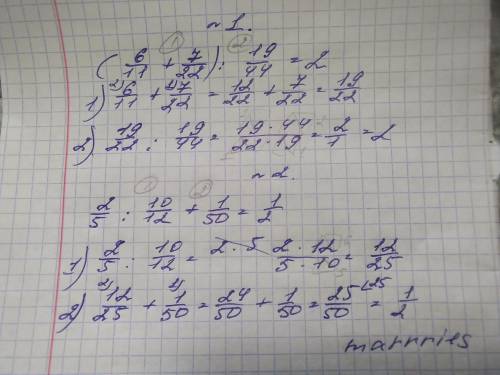 ~ 1.
① ②
(6/11 + 7/22) : 19/44 = 2
1) ²⁾6/11 + ¹⁾7/22 = 12/22 + 7/22 = 19/22
2) 19/22 : 19/44 = 19·44/22·19 = 2/1 = 2
~ 2.
① ②
2/5 : 10/12 + 1/50 = 1/2
1) 2/5 : 10/12 = 2·12/5·10 = 12/25
2) ²⁾12/25 + ¹⁾1/50 = 24/50 + 1/50 = 25/50 (25 = 1/2
marrries